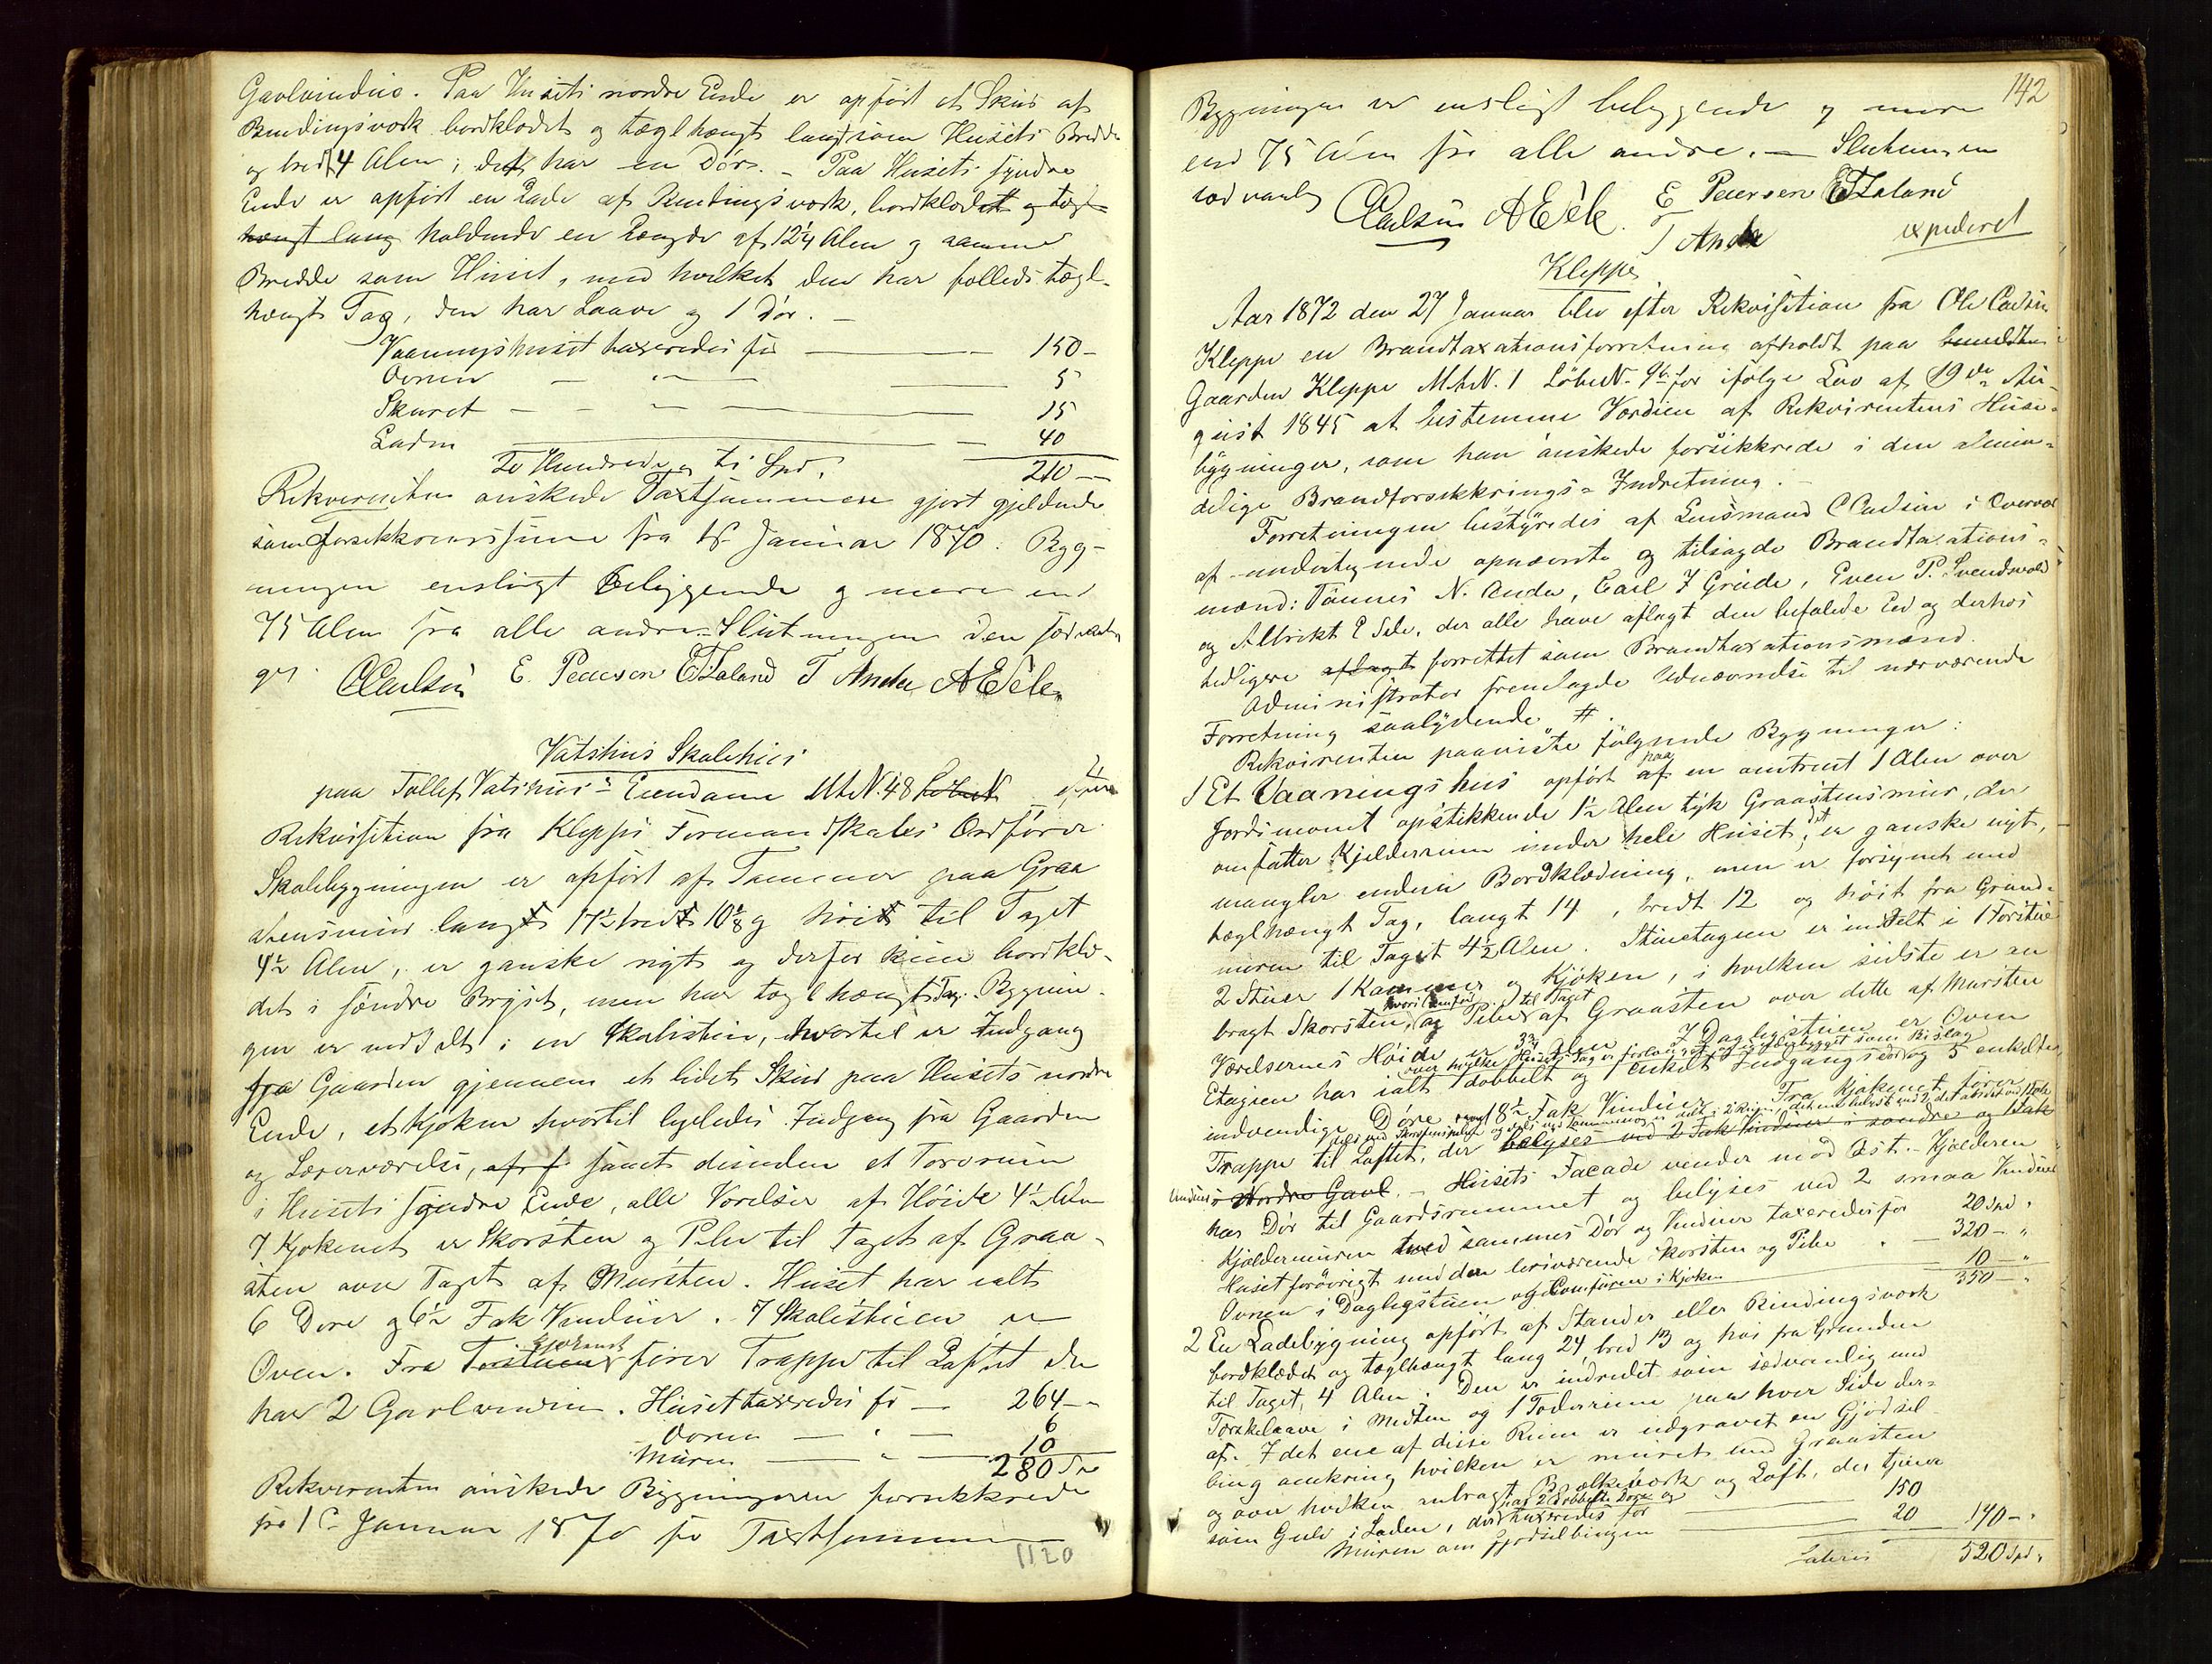 Gavlvinduer. Paa Husets nordre Ende er opført et Skur af
Bindingsværk bordklædt og tæglhængt langt som Husets Bredde
og bredt 4 Alen; det har en Dør. – Paa Husets søndre
Ende er opført en Lade af Bindingsværk, bordklædt og tægl-
hængt lang holdende en Længde af 12 1/4 Alen og samme
Bredde som Huset, med hvilket den har fælleds tægl-
hængt Tag, den har Laave og 1 Dør. –
Vaaningshuset taxeredes for — 150 –
Ovnen — " — 5
Skuret — " — 15
Laden — 40
To Hundrede og ti Spd. 210 –
Rekvirenten ønskede Taxtsummen gjort gjeldende
som Forsikkringssum fra 1st Januar 1870. Byg-
ningen ensligt beliggende og mere end
75 Alen fra alle andre – Slutningen den sædvanli-
ge.
CCarlsen E. Pedersen ETLaland T Anda AESele
Vatshus Skolehus
paa Tollef Vatshus's Eiendom Mt.N. 48 LøbeN efter
Rekvisition fra Klepps Formandskabs Ordfører
Skolebygningen er opført af Tømmer paa Graa
stensmur langt 17 1/2 bredt 10 1/8 og høit til Taget
4 1/2 Alen, er ganske nyt og derfor kun bordklæ-
det i søndre Bryst, men har tæglhængt Tag. Bygnin-
gen er inddelt i en Skolestue, hvortil er Indgang
fra Gaarden gjennem et lidet Skur paa Husets nordre
Ende, et Kjøken hvortil ligeledes Indgang fra Gaarden
og Lærerværelse, af samt desuden et Torvrum
i Husets søndre Ende, alle Værelser af Høide 4 1/2 Alen
I Kjøkenet er Skorsten og Pibe til Taget af Graa-
sten over Taget af Mursten. Huset har ialt
6 Døre og 6 1/2 Fak Vinduer. I Skolestuen er
Kjøkenet
Oven. Fra Forstuen fører Trappe til Loftet der
har 2 Gavlvinduer. Huset taxeredes for — 264 – "
Ovnen — " — 6
Muren — " — 10
280 Spd
Rekvirenten ønskede Bygningerne forsikkrede
fra 1st Januar 1870 for Taxtsummen —
1120
142
Bygningen er ensligt beliggende og mere
end 75 Alen fra alle andre. — Slutningen
sædvanlig
CCarlsen AESele. E Pedersen ETLaland
T Anda
expederet
Kleppe
Aar 1872 den 27 Januar blev efter Rekvisition fra Ole Carlsen
Kleppe en Brandtaxationsforretning afholdt paa
Gaarden Kleppe Mt.N. 1 LøbeN. 9b for ifølge Lov af 19de Au-
gust 1845 at bestemme Værdien af Rekvirentens Huse-
bygninger, som han ønskede forsikkrede i den almin-
delige Brandforsikkrings-Indretning.
Forretningen bestyredes af Lensmand CCarlsen i Overvær
af undertegnede opnævnte og tilsagde Brandtaxations-
mænd: Tønnes N. Anda, Carl I Grude, Even P. Svendsvold
og Albrikt E Sele, der alle have aflagt den befalede Ed og derhos
tidligere aflagt forrettet som Brandtaxationsmænd.
Administrator fremlagde Udnævnelse til nærværende
Forretning saalydende #
Rekvirenten paaviste følgende Bygninger:
paa
1 Et Vaaningshus opført af en omtrent 1 Alen over
Jordsmonet opstikkende 1 1/2 Alen tyk Graastensmur, der
omfatter Kjelderrum under hele Huset, det er ganske nyt,
mangler endnu Bordklædning, men er forsynet med
tæglhængt Tag, langt 14, bredt 12 og høit fra Grund-
muren til Taget 4 1/2 Alen. Stueetagen er inddelt i 1 Forstue
2 Stuer 1 Kammer og Kjøken, i hvilken sidste er an
hvori Comfur til Taget
bragt Skorsten, og Pibe af Graasten over dette af Mursten
Værelsernes Høide er 3 3/4 Alen I Daglegstuen er Oven
over hvilke Husets Tag er forlænget
Etagen har ialt 1 dobbelt og 1 enkelt Indgangsdør og 5 enkelte
indvendige Døre samt 8 1/2 Fak Vinduer. Fra Kjøkenet fører
Trappe til Loftet, der belyses ved 2 Fak Vinduer i søndre og 1 Fak
Vinduer i Nordre Gavl. – Husets Facade vender mod Øst. – Kjelderen
har Dør til Gaardsrummet og belyses ved 2 smaa Vinduer
Kjeldermuren med sammes Dør og Vinduer taxeredes for 20 Spd "
Huset forøvrigt med den beværende Skorsten og Pibe " — 320 – "
Ovnen i Daglegstuen og Comfuren i Kjøken — 10 – "
350 – "
2 En Ladebygning opført af Stander eller Bindingsværk
bordklædt og tæglhængt lang 24, bred 13 og høi fra Grunden
til Taget, 4 Alen. Den er indredet som sædvanlig med
Tærskelaave i Midten og 1 Foderrum paa hver Side der-
af. I det ene af disse Rum er udgravet en Gjødsel-
bing omkring hvilken er muret med Graasten
og over hvilken anbragt Bjælkeværk og Loft, der tjener
har 2 dobbelte Døre og
som Gulv i Laden, der taxeredes for — 150
Muren om Gjødselbingen — 20 170 – "
Lateris 520 Spd "